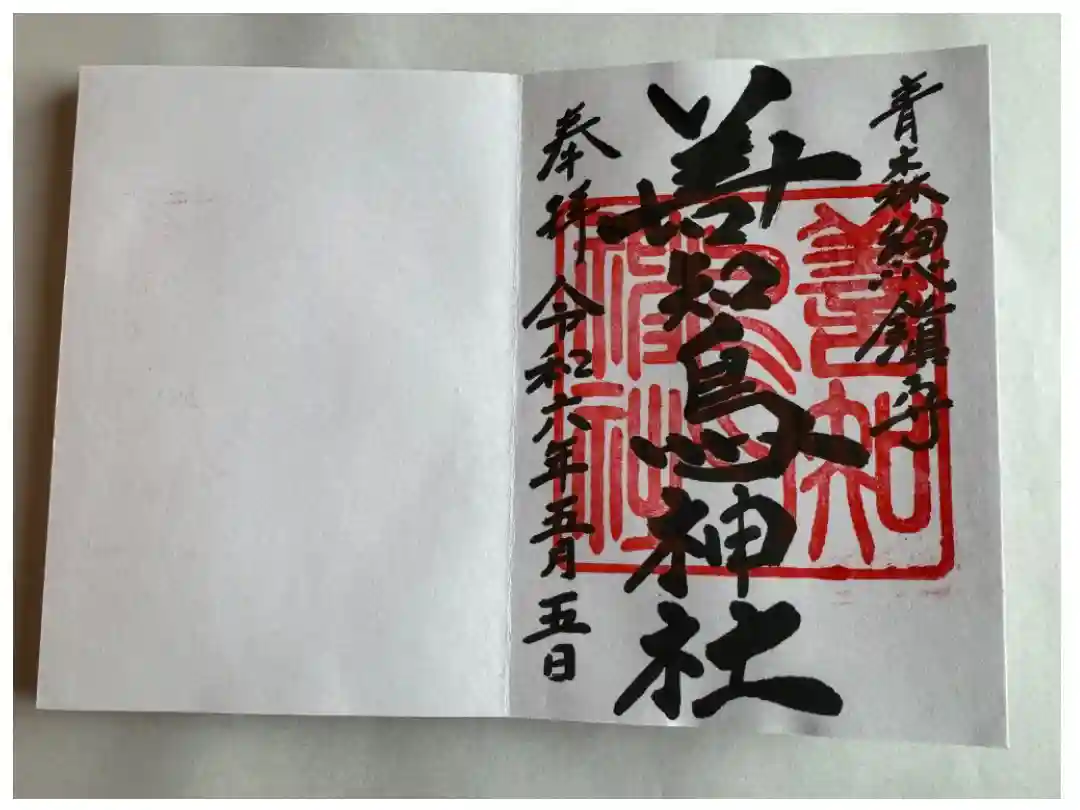 青森総鎮守
善知鳥神社
奉拝 令和六年五月五日
善知鳥神社